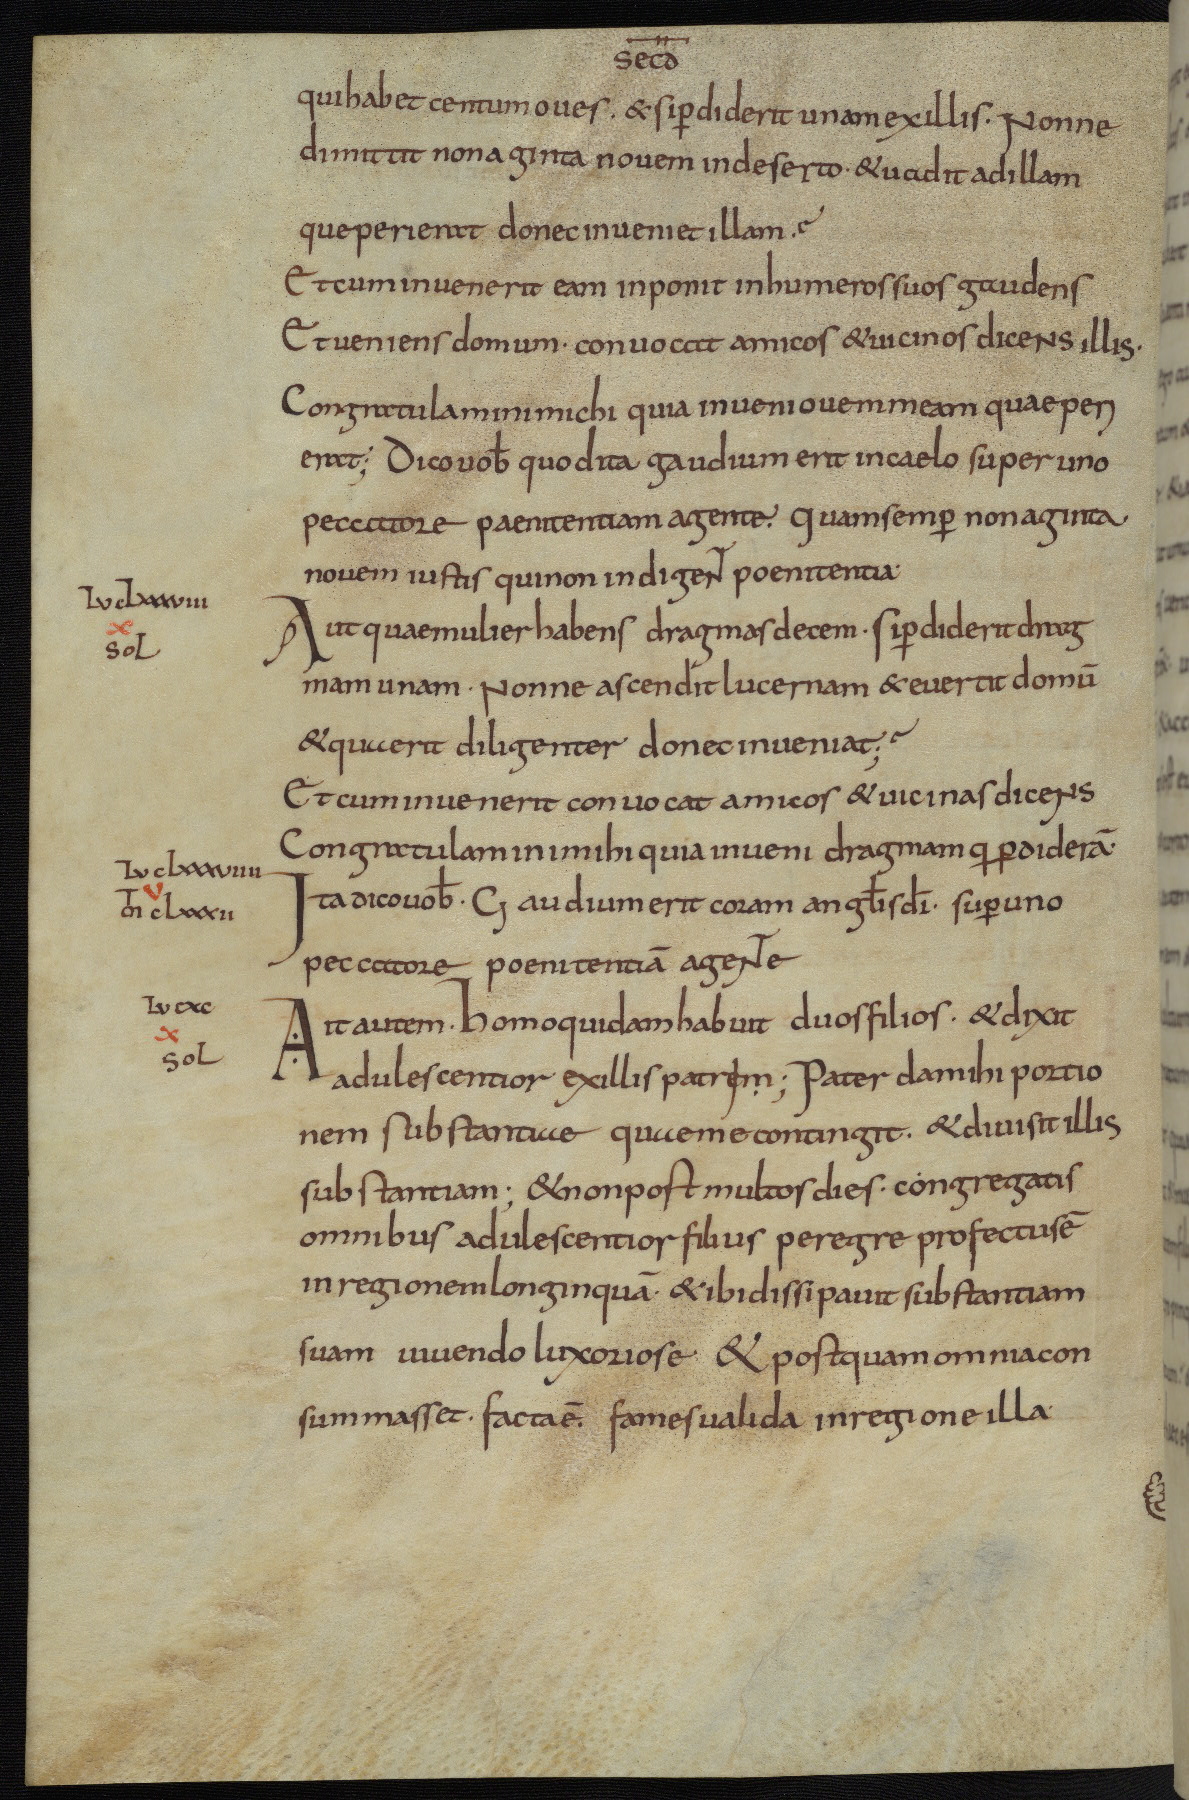 secd̄
qui habet centum oues. & si ꝑdiderit unam ex illis. Nonne
dimittit nonaginta nouem in deserto. & uadit ad illam
que perierat donec inueniet illam.
Et cum inuenerit eam inponit in humeros suos gaudens
Et ueniens domum. conuocat amicos & uicinos dicens illis.
Congratulamini michi quia inueni ouem meam quae peri
erat; Dico uob̄ quod ita gaudium erit in caelo super uno
peccatore paenitentiam agente. Quam semꝑ nonaginta
nouem iustis qui non indigen̄t poenitentia
Lu clxxxviii
x
soL
Aut quae mulier habens dragmas decem. si ꝑdiderit drag
mam unam. Nonne ascendit lucernam & euertit domū
& quaerit diligenter donec inueniat;
Et cum inuenerit conuocat amicos & uicinas dicens
Congratulamini mihi quia inueni dragmam q̄ ꝑdiderā.
Lu clxxxviiii
v
m̄ clxxxii
Ita dico uob̄. Gaudium erit coram angl̄is dī. suꝑ uno
peccatore poenitentiā agen̄te
Lu cxc
x
soL
Ait autem. homo quidam habuit duos filios. & dixit
adulescentior ex illis patrem; Pater da mihi portio
nem substantiae quae me contingit. & diuisit illis
substantiam; & non post multos dies. congregatis
omnibus adulescentior filius peregre profectus ē
in regionem longinquā. & ibi dissipauit substantiam
suam uiuendo luxoriose & postquam omnia con
summasset. facta ē. fames ualida in regione illa